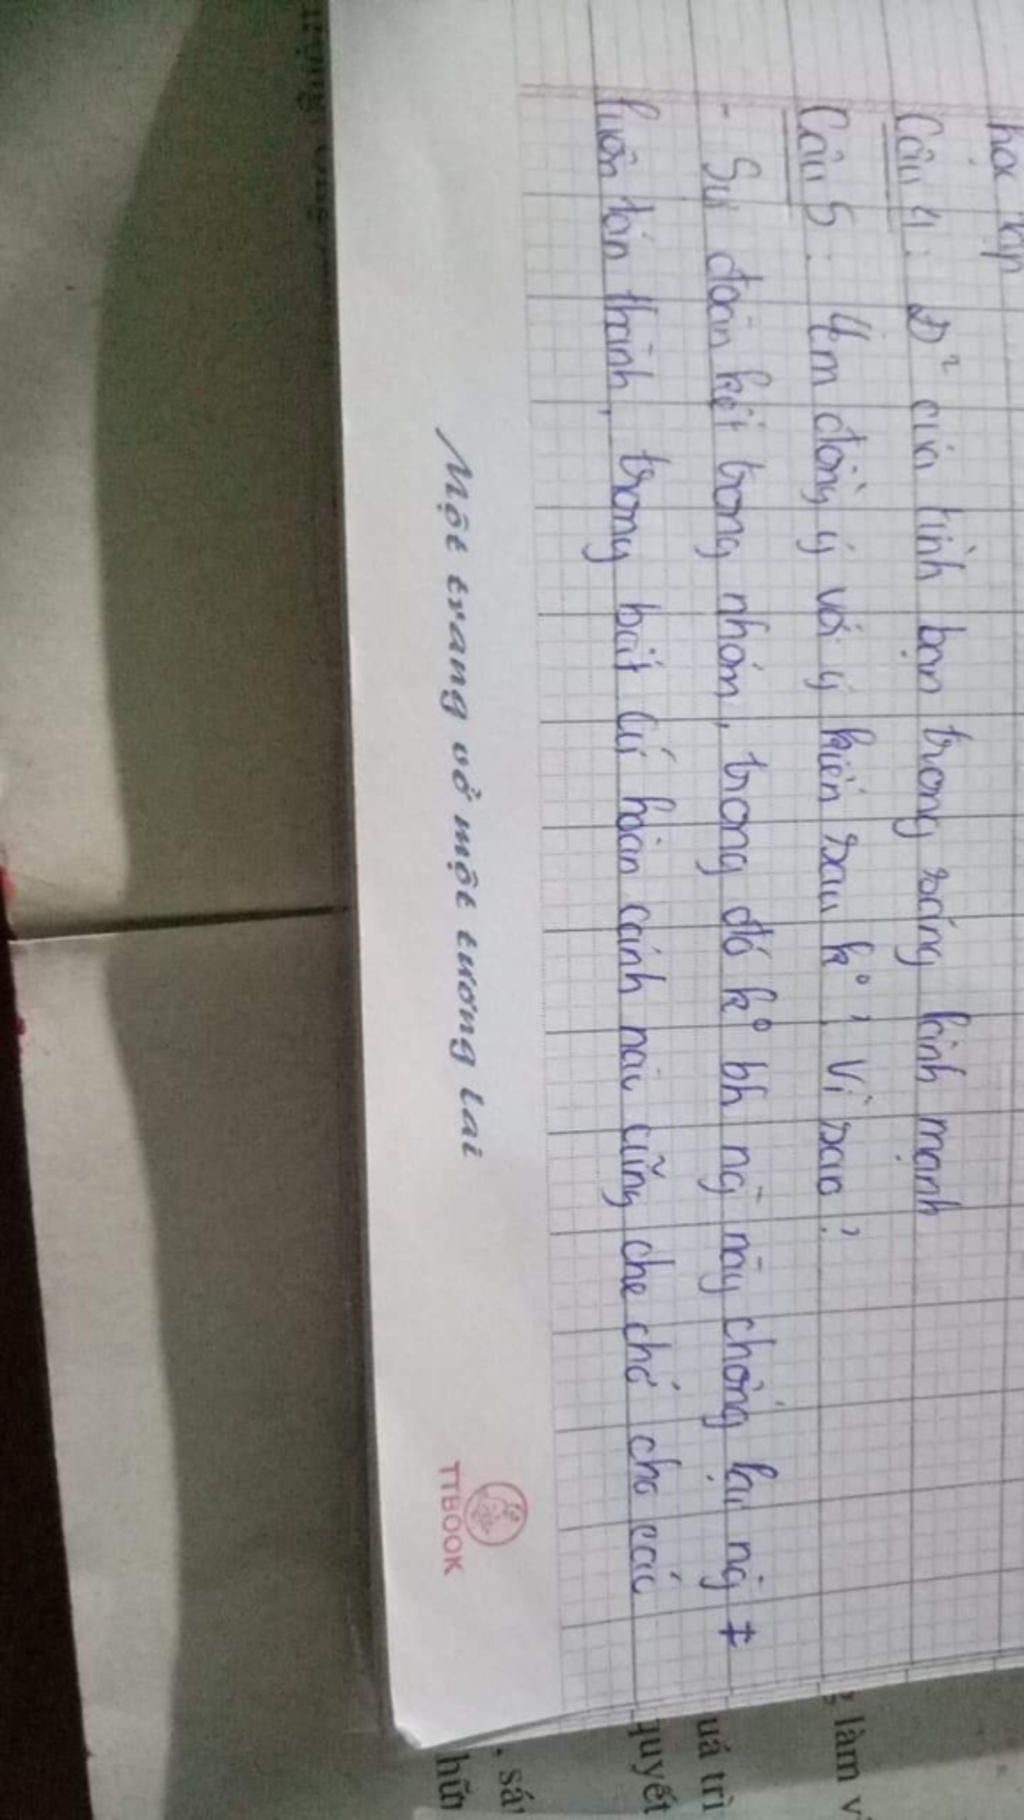 học tập
Câu 4: Đ² của tình bạn trong sáng lành mạnh
Câu 5: Em đồng ý với ý kiến sau k° ? Vì sao?
- Sự đoàn kết trong nhóm, trong đó k° bh ng` này chống lại ng` ≠
luôn tán thành, trong bất cứ hoàn cảnh nào cũng che chở cho các
Một trang vở một tương lai
TTBOOK
làm v
uá trì
quyết
sá
hữu